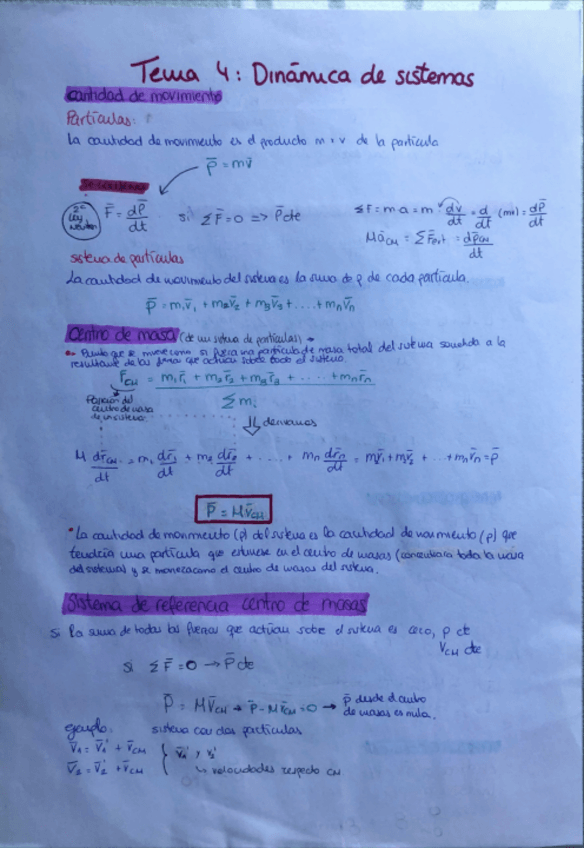 Tema 4: Dinámica de sistemas
Cantidad de movimiento
Partículas:
La cantidad de movimiento es el producto m x v de la partícula
p̄ = mv̄
Se conserva
2ª Ley Newton F̄ = dP̄/dt si ΣF̄=0 => P̄ cte ΣF = m a = m dv/dt = d/dt (mv) = dP̄/dt
Mā_CM = ΣF̄ext = dP̄_CM/dt
sistema de partículas
La cantidad de movimiento del sistema es la suma de p de cada partícula.
P̄ = m₁v̄₁ + m₂v̄₂ + m₃v̄₃ + .... + mₙv̄ₙ
Centro de masa (de un sistema de partículas) →
Punto que se mueve como si fuera una partícula de masa total del sistema sometida a la
resultante de las fuerzas que actúan sobre todo el sistema.
r̄_CM = m₁r̄₁ + m₂r̄₂ + m₃r̄₃ + .... + mₙr̄ₙ / Σmᵢ
Posición del
centro de masa
de un sistema.
⇓ derivamos
M dr̄_CM/dt = m₁ dr̄₁/dt + m₂ dr̄₂/dt + .... + mₙ dr̄ₙ/dt = m₁v̄₁ + m₂v̄₂ + ... + mₙv̄ₙ = p̄
P̄ = Mv̄_CM
* La cantidad de movimiento (p) del sistema es la cantidad de movimiento (p) que
tendría una partícula que estuviese en el centro de masas (concentrara toda la masa
del sistema) y se moviera como el centro de masas del sistema.
Sistema de referencia centro de masas
Si la suma de todas las fuerzas que actúan sobre el sistema es cero, p cte
V_CM cte
Si ΣF̄ = 0 → P̄ cte
P̄ = Mv̄_CM → P̄ - Mv̄_CM = 0 → p̄ desde el centro
de masas es nula.
ejemplo: sistema con dos partículas
v̄₁ = v̄₁' + v̄_CM { v̄₁' y v₂'
v̄₂ = v̄₂' + v̄_CM ↳ velocidades respecto CM